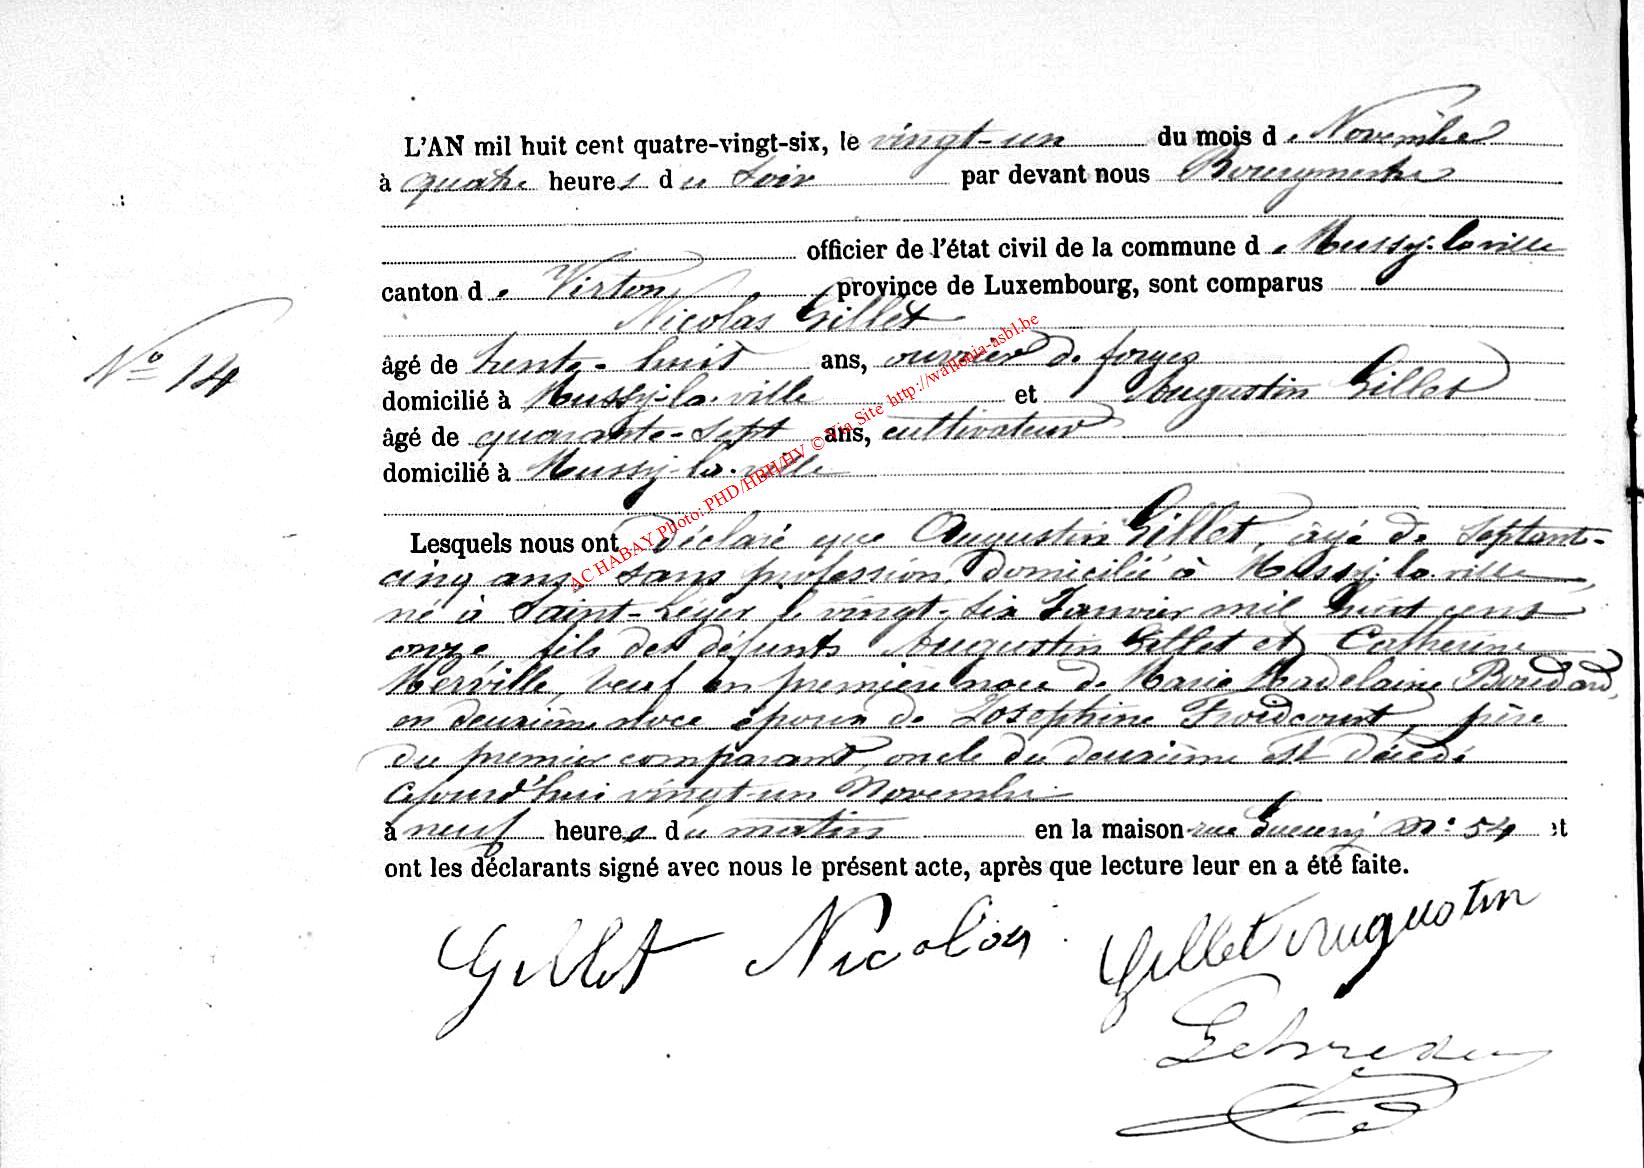 L'AN mil huit cent quatre-vingt-six, le vingt-un du mois de Novembre
à quatre heures du soir par devant nous Bourgmestre
officier de l'état civil de la commune de Mussy-la-ville
canton de Virton province de Luxembourg, sont comparus
Nicolas Gillet
N° 14
âgé de trente-huit ans, ouvrier de forges
domicilié à Mussy-la-ville et Augustin Gillet
âgé de quarante-sept ans, cultivateur
domicilié à Mussy-la-ville
AC HABAY Photo: PHD/HBH/HV © Via Site http://wallonia-asbl.be
Lesquels nous ont déclaré que Augustin Gillet, âgé de septant-
cinq ans, sans profession, domicilié à Mussy-la-ville,
né à Saint-Léger le vingt-six Janvier mil huit cent
onze fils des défunts Augustin Gillet et Catherine
Merville, veuf en première noce de Marie Madelaine Boudard,
en deuxième noce époux de Josephine Froidcourt, père
du premier comparant, oncle du deuxième est décédé
ajourd'hui vingt-un Novembre
à neuf heures du matin en la maison rue n° 54 et
ont les déclarants signé avec nous le présent acte, après que lecture leur en a été faite.
Gillet Nicolas Gillet Augustin